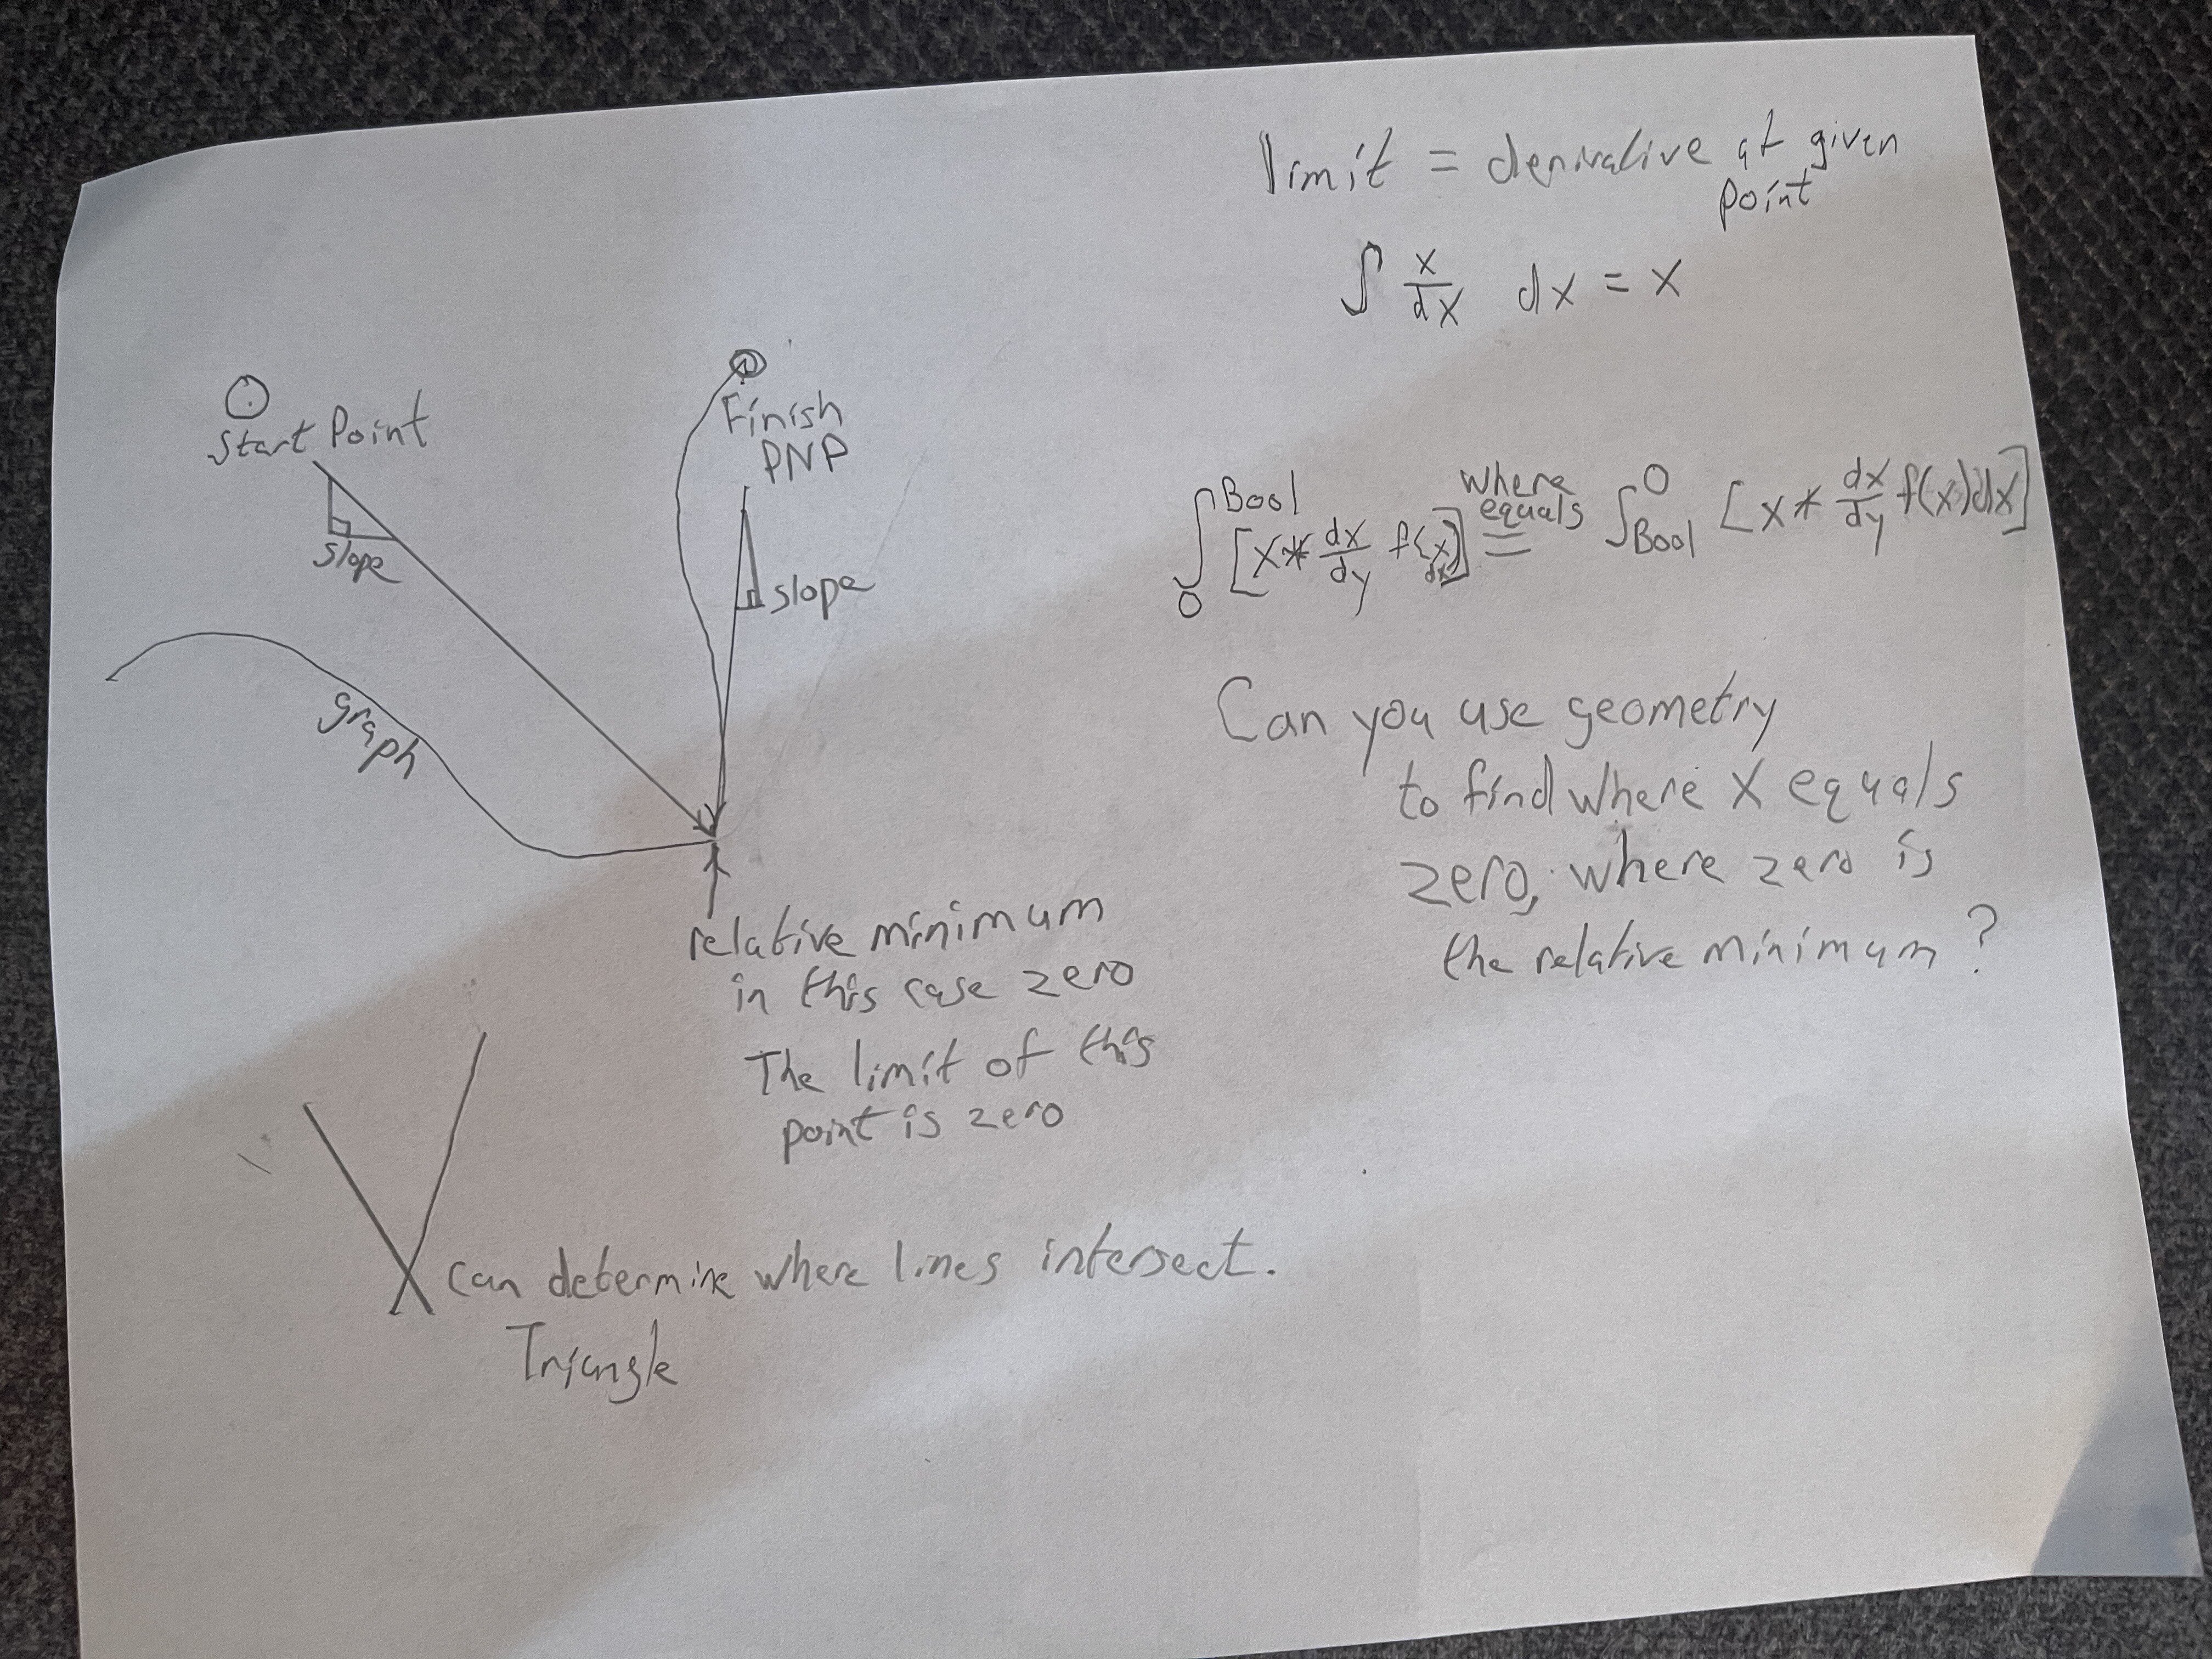 limit = derivative at given
point
∫ x/dx dx = x
Start Point
slope
Finish
PNP
slope
graph
∫₀^Bool [x * dx/dy f(x) dx] where equals = ∫_Bool^0 [x * dx/dy f(x)dx]
Can you use geometry
to find where x equals
zero, where zero is
the relative minimum?
relative minimum
in this case zero
The limit of this
point is zero
can determine where lines intersect.
Triangle